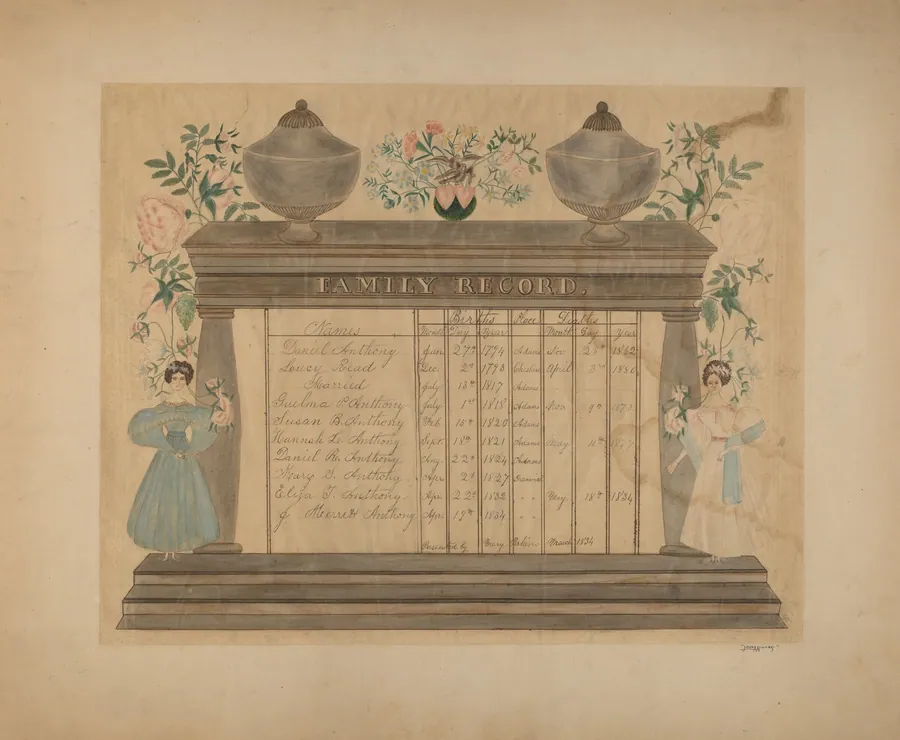 FAMILY RECORD.
Births Place Deaths
Names Month Day Year Month Day Year
Daniel Anthony Jan 27th 1794 Adams Nov 1862
Lovcy Read Dec. 2d 1793 April 3rd 1880
Married July 13th 1817 Adams
Guelma P. Anthony July 1st 1818 Adams Nov 9th 1873
Susan B. Anthony Feb 15th 1820 Adams
Hannah L. Anthony Sept. 18th 1821 Adams May 11th
Daniel R. Anthony Aug. 22d 1824 Adams
Mary S. Anthony Apr 2d 1827
Eliza T. Anthony Apr 22d 1832 " " May 18th 1834
J Merrett Anthony Apr 19th 1834 " "
by Mary March 1834